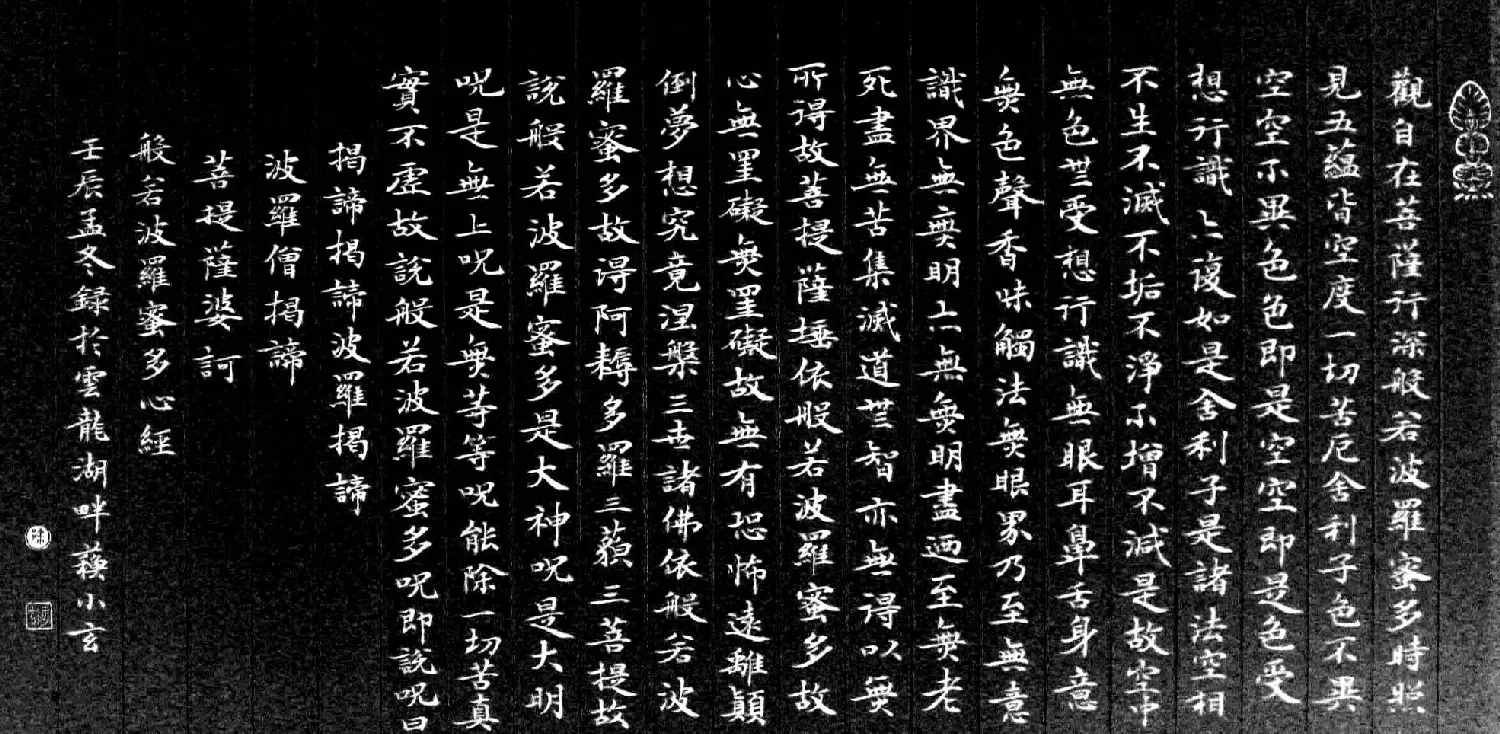 觀自在菩薩行深般若波羅蜜多時照
見五蘊皆空度一切苦厄舍利子色不異
空空不異色色即是空空即是色受
想行識亦復如是舍利子是諸法空相
不生不滅不垢不淨不增不減是故空中
無色無受想行識無眼耳鼻舌身意
無色聲香味觸法無眼界乃至無意
識界無無明亦無無明盡迺至無老
死盡無苦集滅道無智亦無得以無
所得故菩提薩埵依般若波羅蜜多故
心無罣礙無罣礙故無有恐怖遠離顛
倒夢想究竟涅槃三世諸佛依般若波
羅蜜多故得阿耨多羅三藐三菩提故
說般若波羅蜜多是大神呪是大明
呪是無上呪是無等等呪能除一切苦真
實不虛故說般若波羅蜜多呪即說呪曰
揭諦揭諦波羅揭諦
波羅僧揭諦
菩提薩婆訶
般若波羅蜜多心經
壬辰孟冬録於雲龍湖畔藕小玄